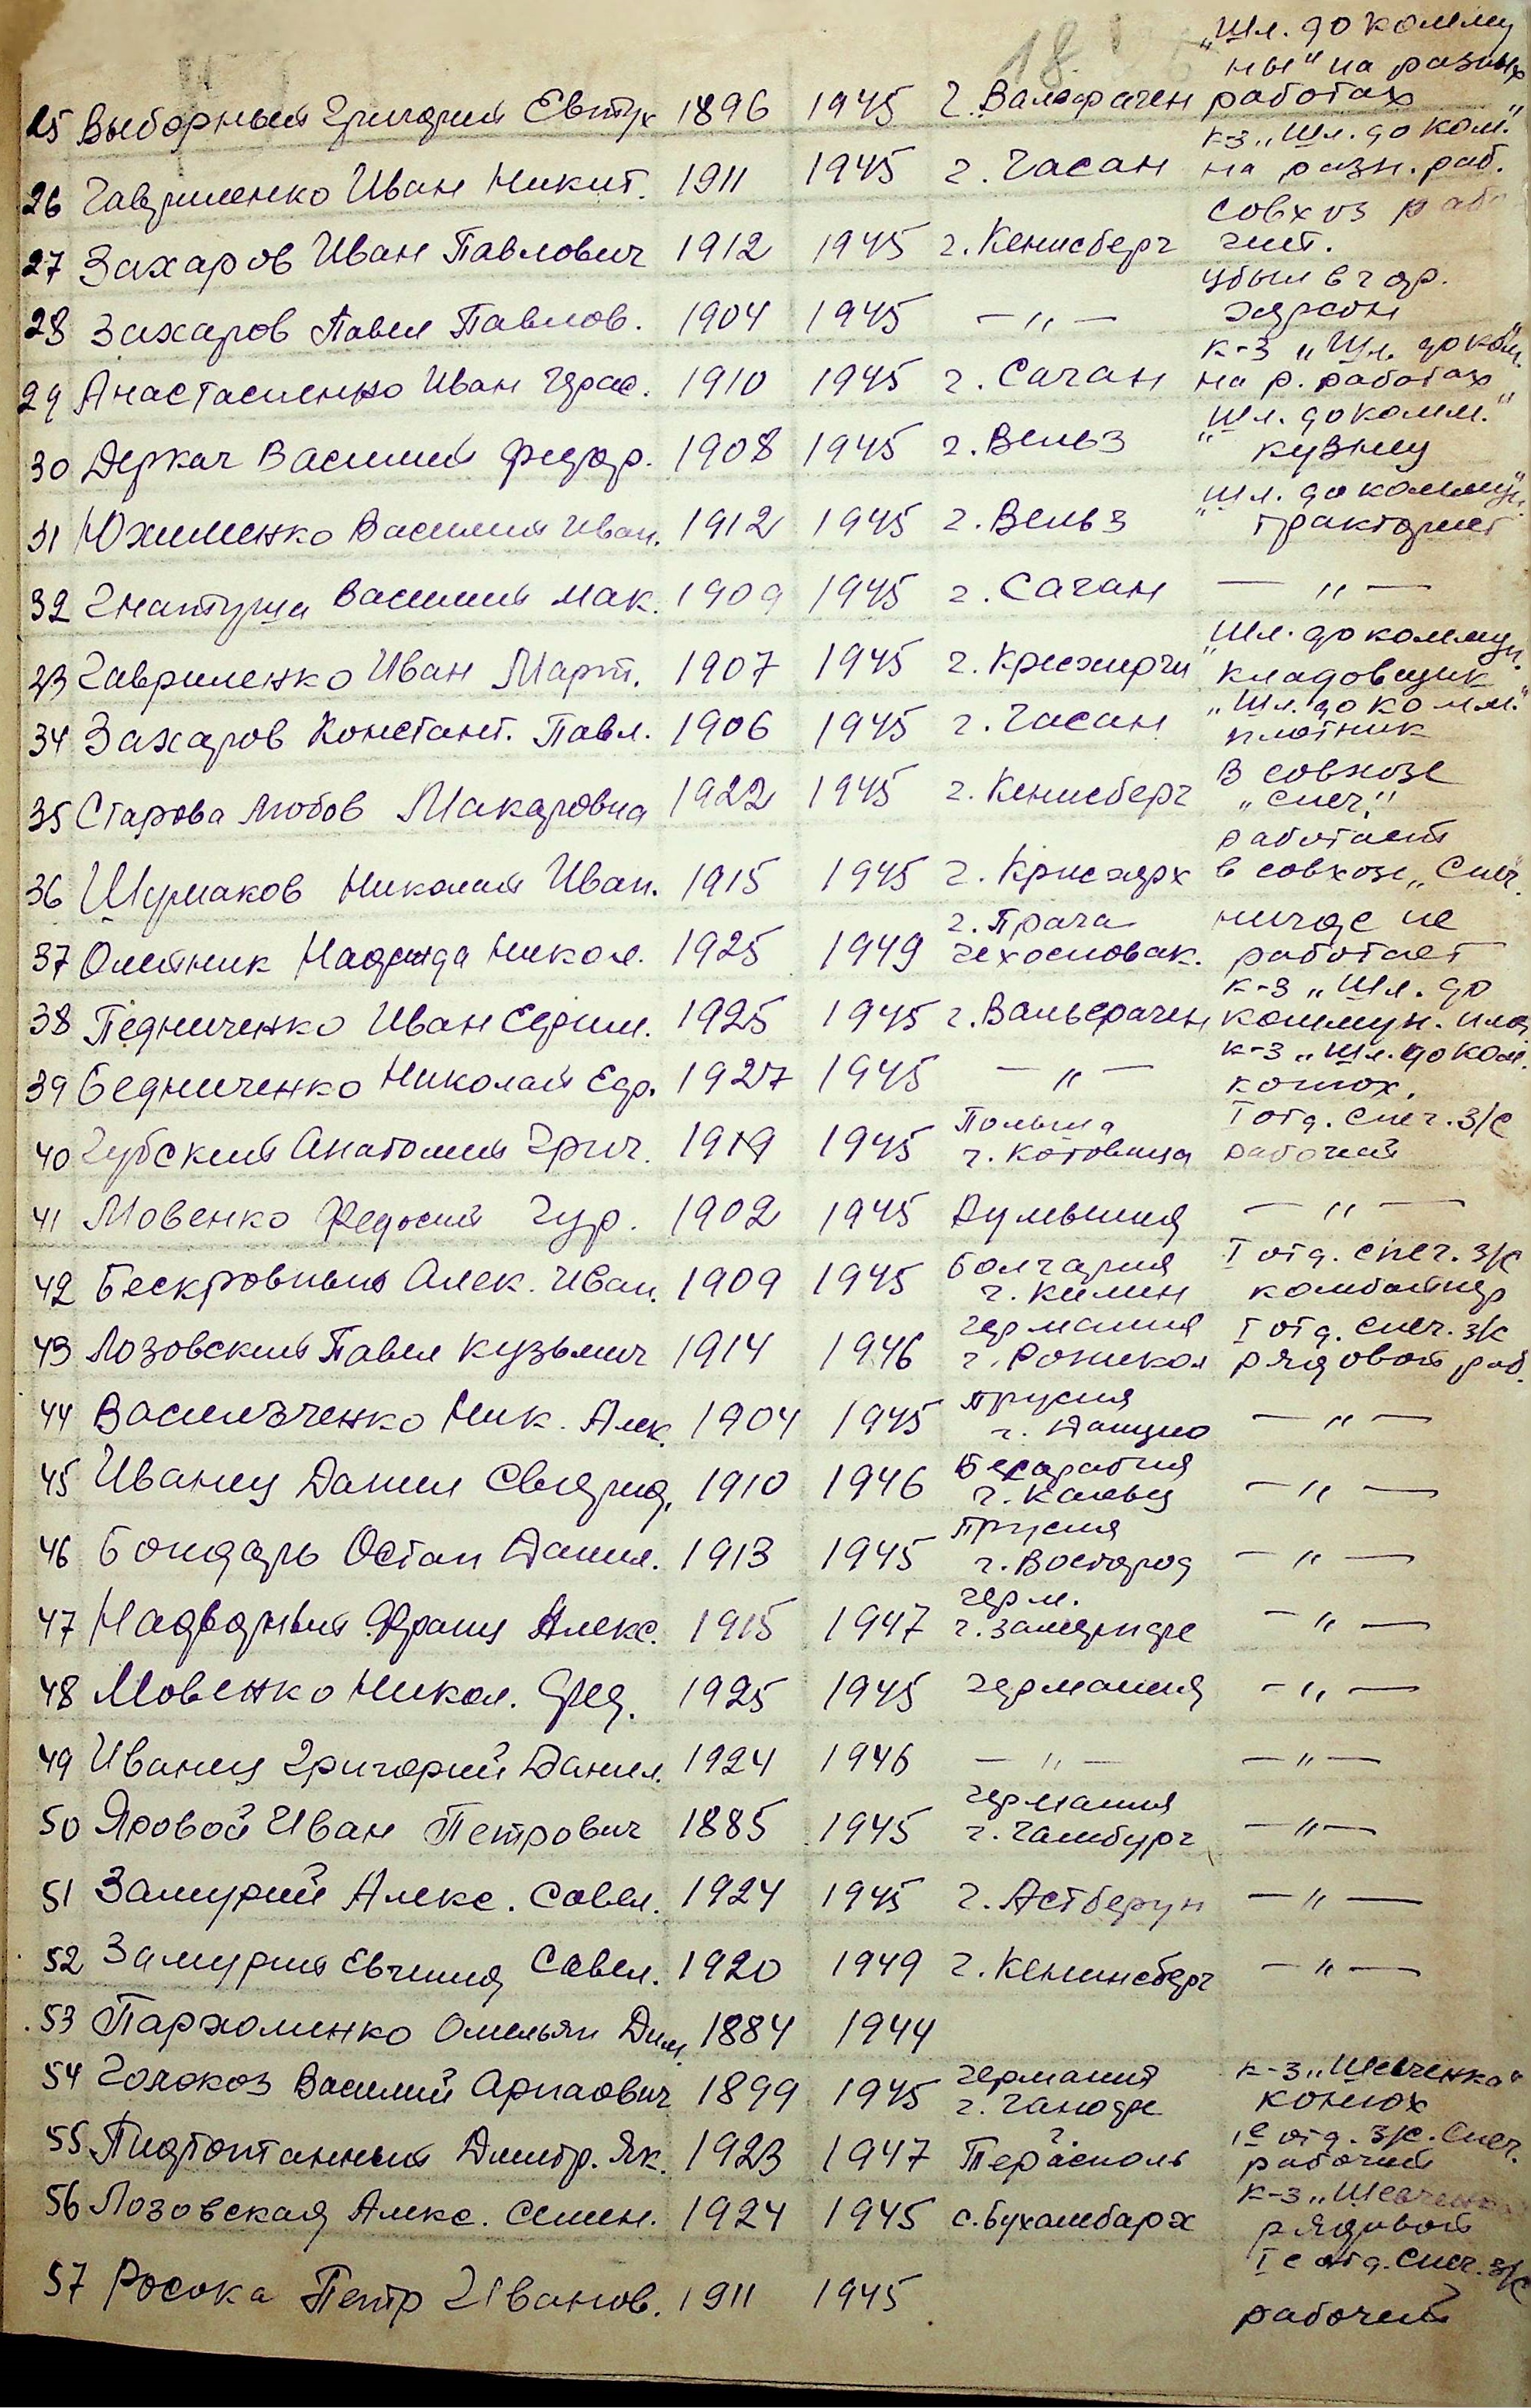 18.
„Шл. до комму
ны" на разных
25 Выборный Григорий Евтух 1896 1945 г. Валдфаген работах
к-з „Шл. до ком."
26 Гавриленко Иван Никит. 1911 1945 г. Гасан на разн. раб.
совхоз раб
27 Захаров Иван Павлович 1912 1945 г. Кенисберг гит.
убыл в гор.
28 Захаров Павел Павлов. 1904 1945 — „ — Херсон
к-з „Шл. до ком.
29 Анастасиенко Иван Герас. 1910 1945 г. Саган на р. работах
„Шл. до комм."
30 Деркач Василий Федор. 1908 1945 г. Вельз кузнец
„Шл. до коммун."
31 Юхименко Василий Иван. 1912 1945 г. Вельз тракторист
32 Гнатуша Василий Мак. 1909 1945 г. Саган — „ —
„Шл. до коммун.
33 Гавриленко Иван Март. 1907 1945 г. кладовщик
„Шл. до комм."
34 Захаров Констант. Павл. 1906 1945 г. Гасан плотник
В совхозе
35 Старова Любов Макаровна 1922 1945 г. Кенисберг „Снег."
работает
36 Шумаков Николай Иван. 1915 1945 г. в совхозе „Снег.
г. Прага нигде не
37 Олейник Надежда Никол. 1925 1949 Чехословак. работает
к-з „Шл. до
38 Педниченко Иван Ефим. 1925 1945 г. Вальсраген коммун.
к-з „Шл. до ком.
39 Бедниченко Николай Ефр. 1927 1945 — „ — конюх.
Польша I отд. Снег. З/С
40 Губский Анатолий Григ. 1919 1945 г. Котовица рабочий
41 Мовенко Федосий Гур. 1902 1945 Румыния — „ —
Болгария I отд. Снег. З/С
42 Бескровный Алек. Иван. 1909 1945 г. Килин комбайнер
Германия I отд. Снег. З/С
43 Лозовский Павел Кузьмич 1914 1946 г. рядовой раб.
Прусия
44 Васильченко Ник. Алек. 1904 1945 г. Данциг — „ —
Бесарабия
45 Иванец Данил Свирид. 1910 1946 г. — „ —
Прусия
46 Бондарь Остап Данил. 1913 1945 г. Востород — „ —
Герм.
47 Надворный Франц Алекс. 1915 1947 г. — „ —
48 Мовенко Никол. Фед. 1925 1945 Германия — „ —
49 Иванец Григорий Данил. 1924 1946 — „ — — „ —
Германия
50 Яровой Иван Петрович 1885 1945 г. Гамбург — „ —
51 Замурий Алекс. Савел. 1924 1945 г. Астберун — „ —
52 Замурий Евгения Савел. 1920 1949 г. Кенинсберг — „ —
53 Пархоменко Омельян Дем. 1884 1944
Германия к-з „Шевченка"
54 Голокоз Василий Арпаович 1899 1945 г. Ганоде конюх
I е отд. З/С. Снег.
55 Пидтоптанный Дмитр. Як. 1923 1947 Терасполь рабочий
к-з „Шевченк
56 Лозовская Алекс. Семен. 1924 1945 с. Бухамбарх рядовой
I е отд. Снег. З/С
57 Росока Петр Иванов. 1911 1945 рабочий